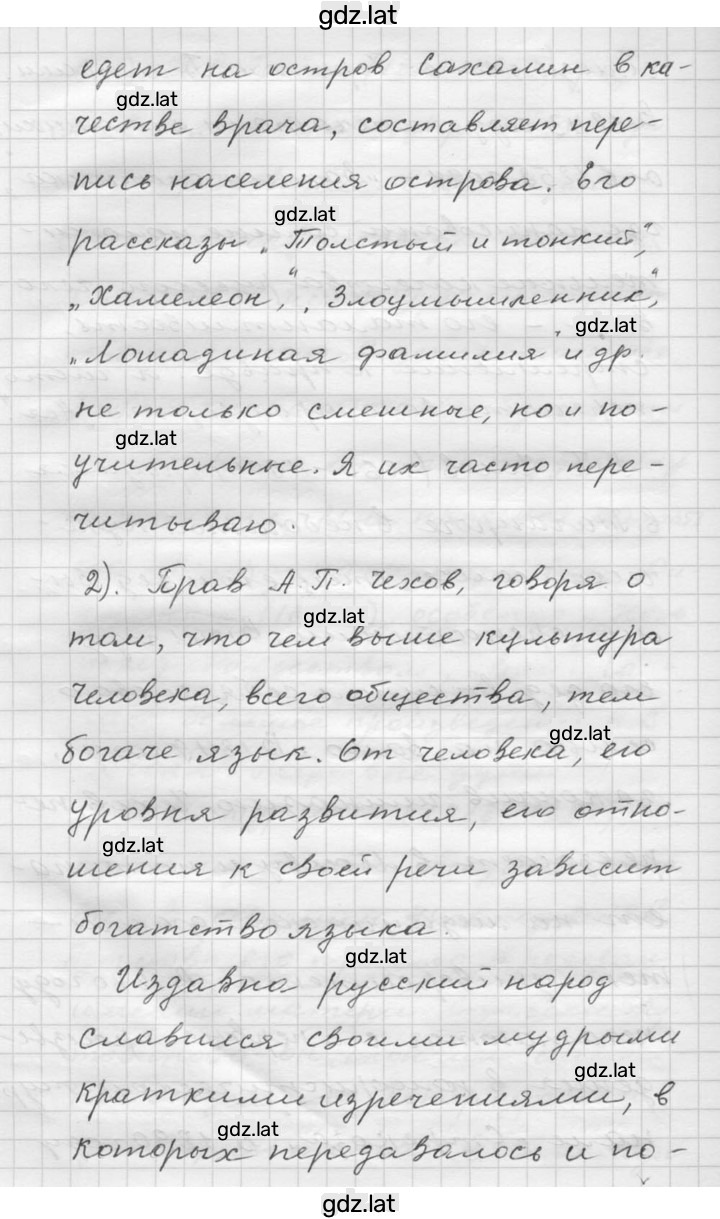 gdz.lat
едет на остров Сахалин в ка-
gdz.lat
честве врача, составляет пере-
пись населения острова. Его
gdz.lat
рассказы „Толстый и тонкий",
„Хамелеон", „Злоумышленник",
gdz.lat
„Лошадиная фамилия" и др.
не только смешные, но и по-
gdz.lat
учительные. Я их часто пере-
читываю.
2). Прав А. П. Чехов, говоря о
gdz.lat
том, что чем выше культура
человека, всего общества, тем
gdz.lat
богаче язык. От человека, его
уровня развития, его отно-
gdz.lat
шения к своей речи зависит
богатство языка.
gdz.lat
Издавна русский народ
славился своими мудрыми
gdz.lat
краткими изречениями, в
gdz.lat
которых передавалось и по-
gdz.lat